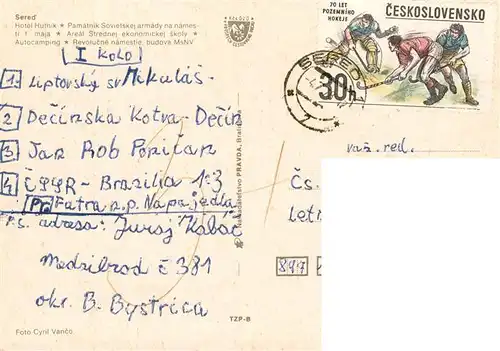 Sereď
Hotel Hutník ★ Pamätník Sovietskej armády na námes-
tí 1. mája ★ Areál Strednej ekonomickej školy ★
Autocamping ★ Revolučné námestie, budova MsNV
I KOLO
1. Liptovský sv. Mikuláš
2 Dečínska Kotva-Dečín
3 Jan Rob Poničan
4 ČSSR - Brazília 1:3
Pr. Fatra n.p. Napajedla
P.S. adresa: Juraj Kobáč
Medzibrod č 381
okr. B. Bystrica
Foto Cyril Vančo
TZP-B
Nakladateľstvo PRAVDA, Bratislava
70 LET
POZEMNÍHO
HOKEJE
ČESKOSLOVENSKO
30h
SEREĎ
Váž. red.
Čs.
Letn
897